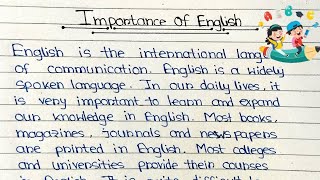 Importance Of English
English is the international lang
of communication. English is a widely
spoken language. In our daily lives, it
is very important to learn and expand
our knowledge in English. Most books,
magazines, journals and newspapers
are printed in English. Most colleges
and universities provide their courses
in English. It is quite difficult